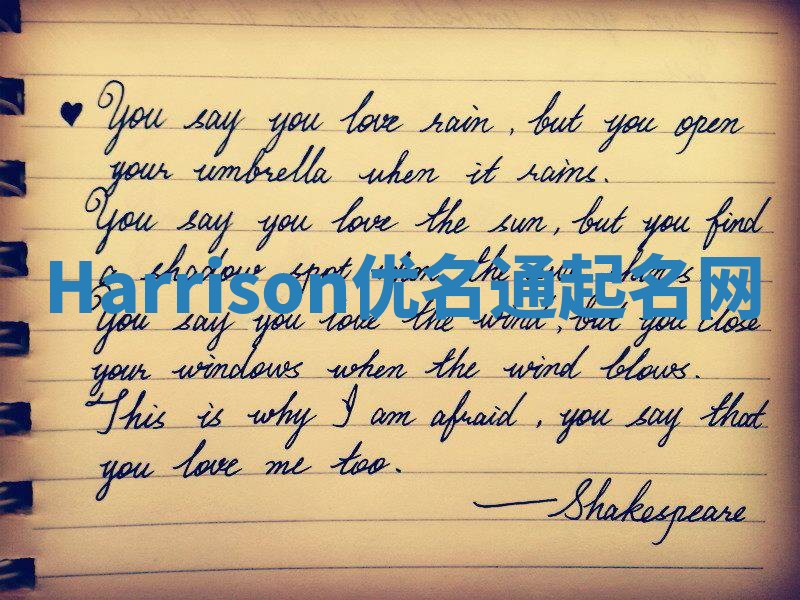 ♥ You say you love rain, but you open
your umbrella when it rains.
You say you love the sun, but you find
a shadow spot when the sun shines
Harrison优名通起名网
You say you love the wind, but you close
your windows when the wind blows.
This is why I am afraid, you say that
you love me too.
— Shakespeare